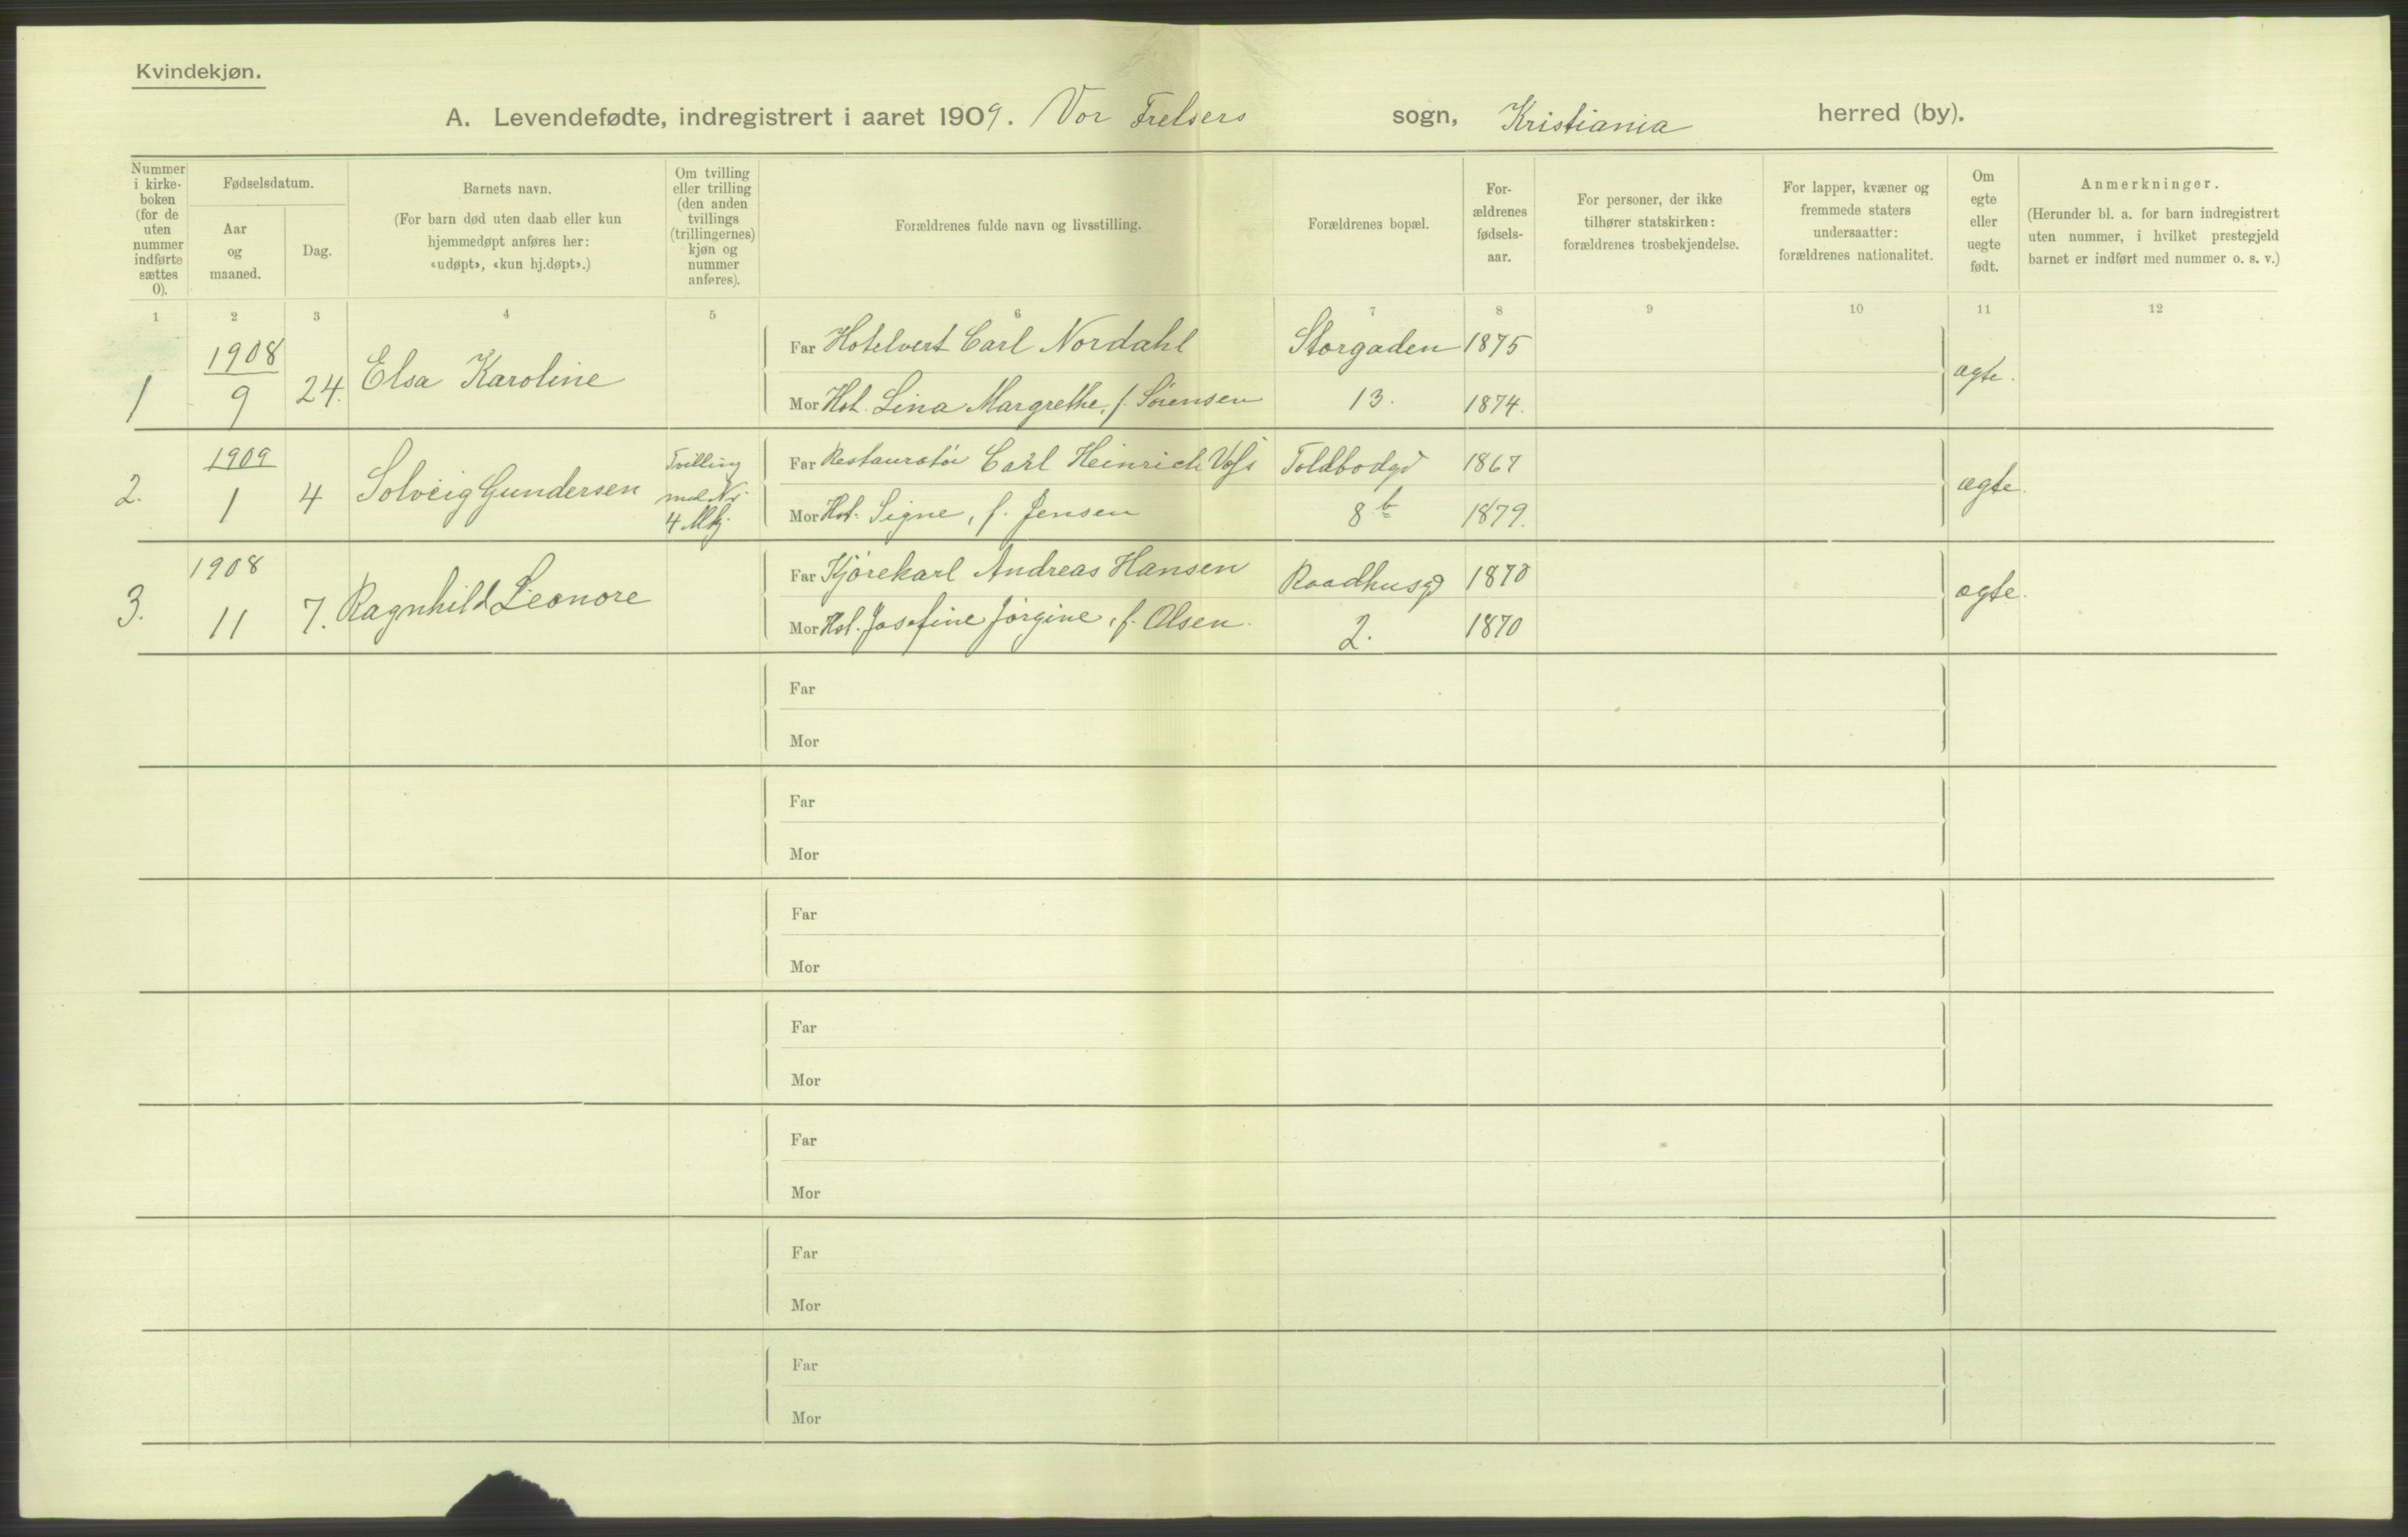 Kvindekjøn.
A. Levendefødte, indregistrert i aaret 1909. Vor Frelsers sogn, Kristiania herred (by).
Nummer i kirke-boken (for de uten nummer indførte sættes 0).
Fødselsdatum.
Aar og maaned.
Dag.
Barnets navn.
(For barn død uten daab eller kun hjemmedøpt anføres her: «udøpt», «kun hj.døpt».)
Om tvilling eller trilling (den anden tvillings (trillingernes) kjøn og nummer anføres).
Forældrenes fulde navn og livsstilling.
Forældrenes bopæl.
For-ældrenes fødsels-aar.
For personer, der ikke tilhører statskirken: forældrenes trosbekjendelse.
For lapper, kvæner og fremmede staters undersaatter: forældrenes nationalitet.
Om egte eller uegte født.
Anmerkninger.
(Herunder bl. a. for barn indregistrert uten nummer, i hvilket prestegjeld barnet er indført med nummer o. s. v.)
1 2 3 4 5 6 7 8 9 10 11 12
1 1908 9 24. Elsa Karoline
Far Hotelvert Carl Nordahl Storgaden 1875
Mor Hst. Lina Margrethe, f. Sörensen 13. 1874.
ægte.
2. 1909 1 4 Solveig Gundersen
Tvilling med Nr. 4 Mkj.
Far Restauratör Carl Heinrich Voss Toldbodgd 1867
Mor Hst. Signe, f. Jensen 8 b 1879.
ægte.
3. 1908 11 7. Ragnhild Leonore
Far Kjörekarl Andreas Hansen Raadhusgd 1870
Mor Hst. Josefine Jörgine, f. Olsen. 2. 1870
ægte.
Far
Mor
Far
Mor
Far
Mor
Far
Mor
Far
Mor
Far
Mor
Far
Mor